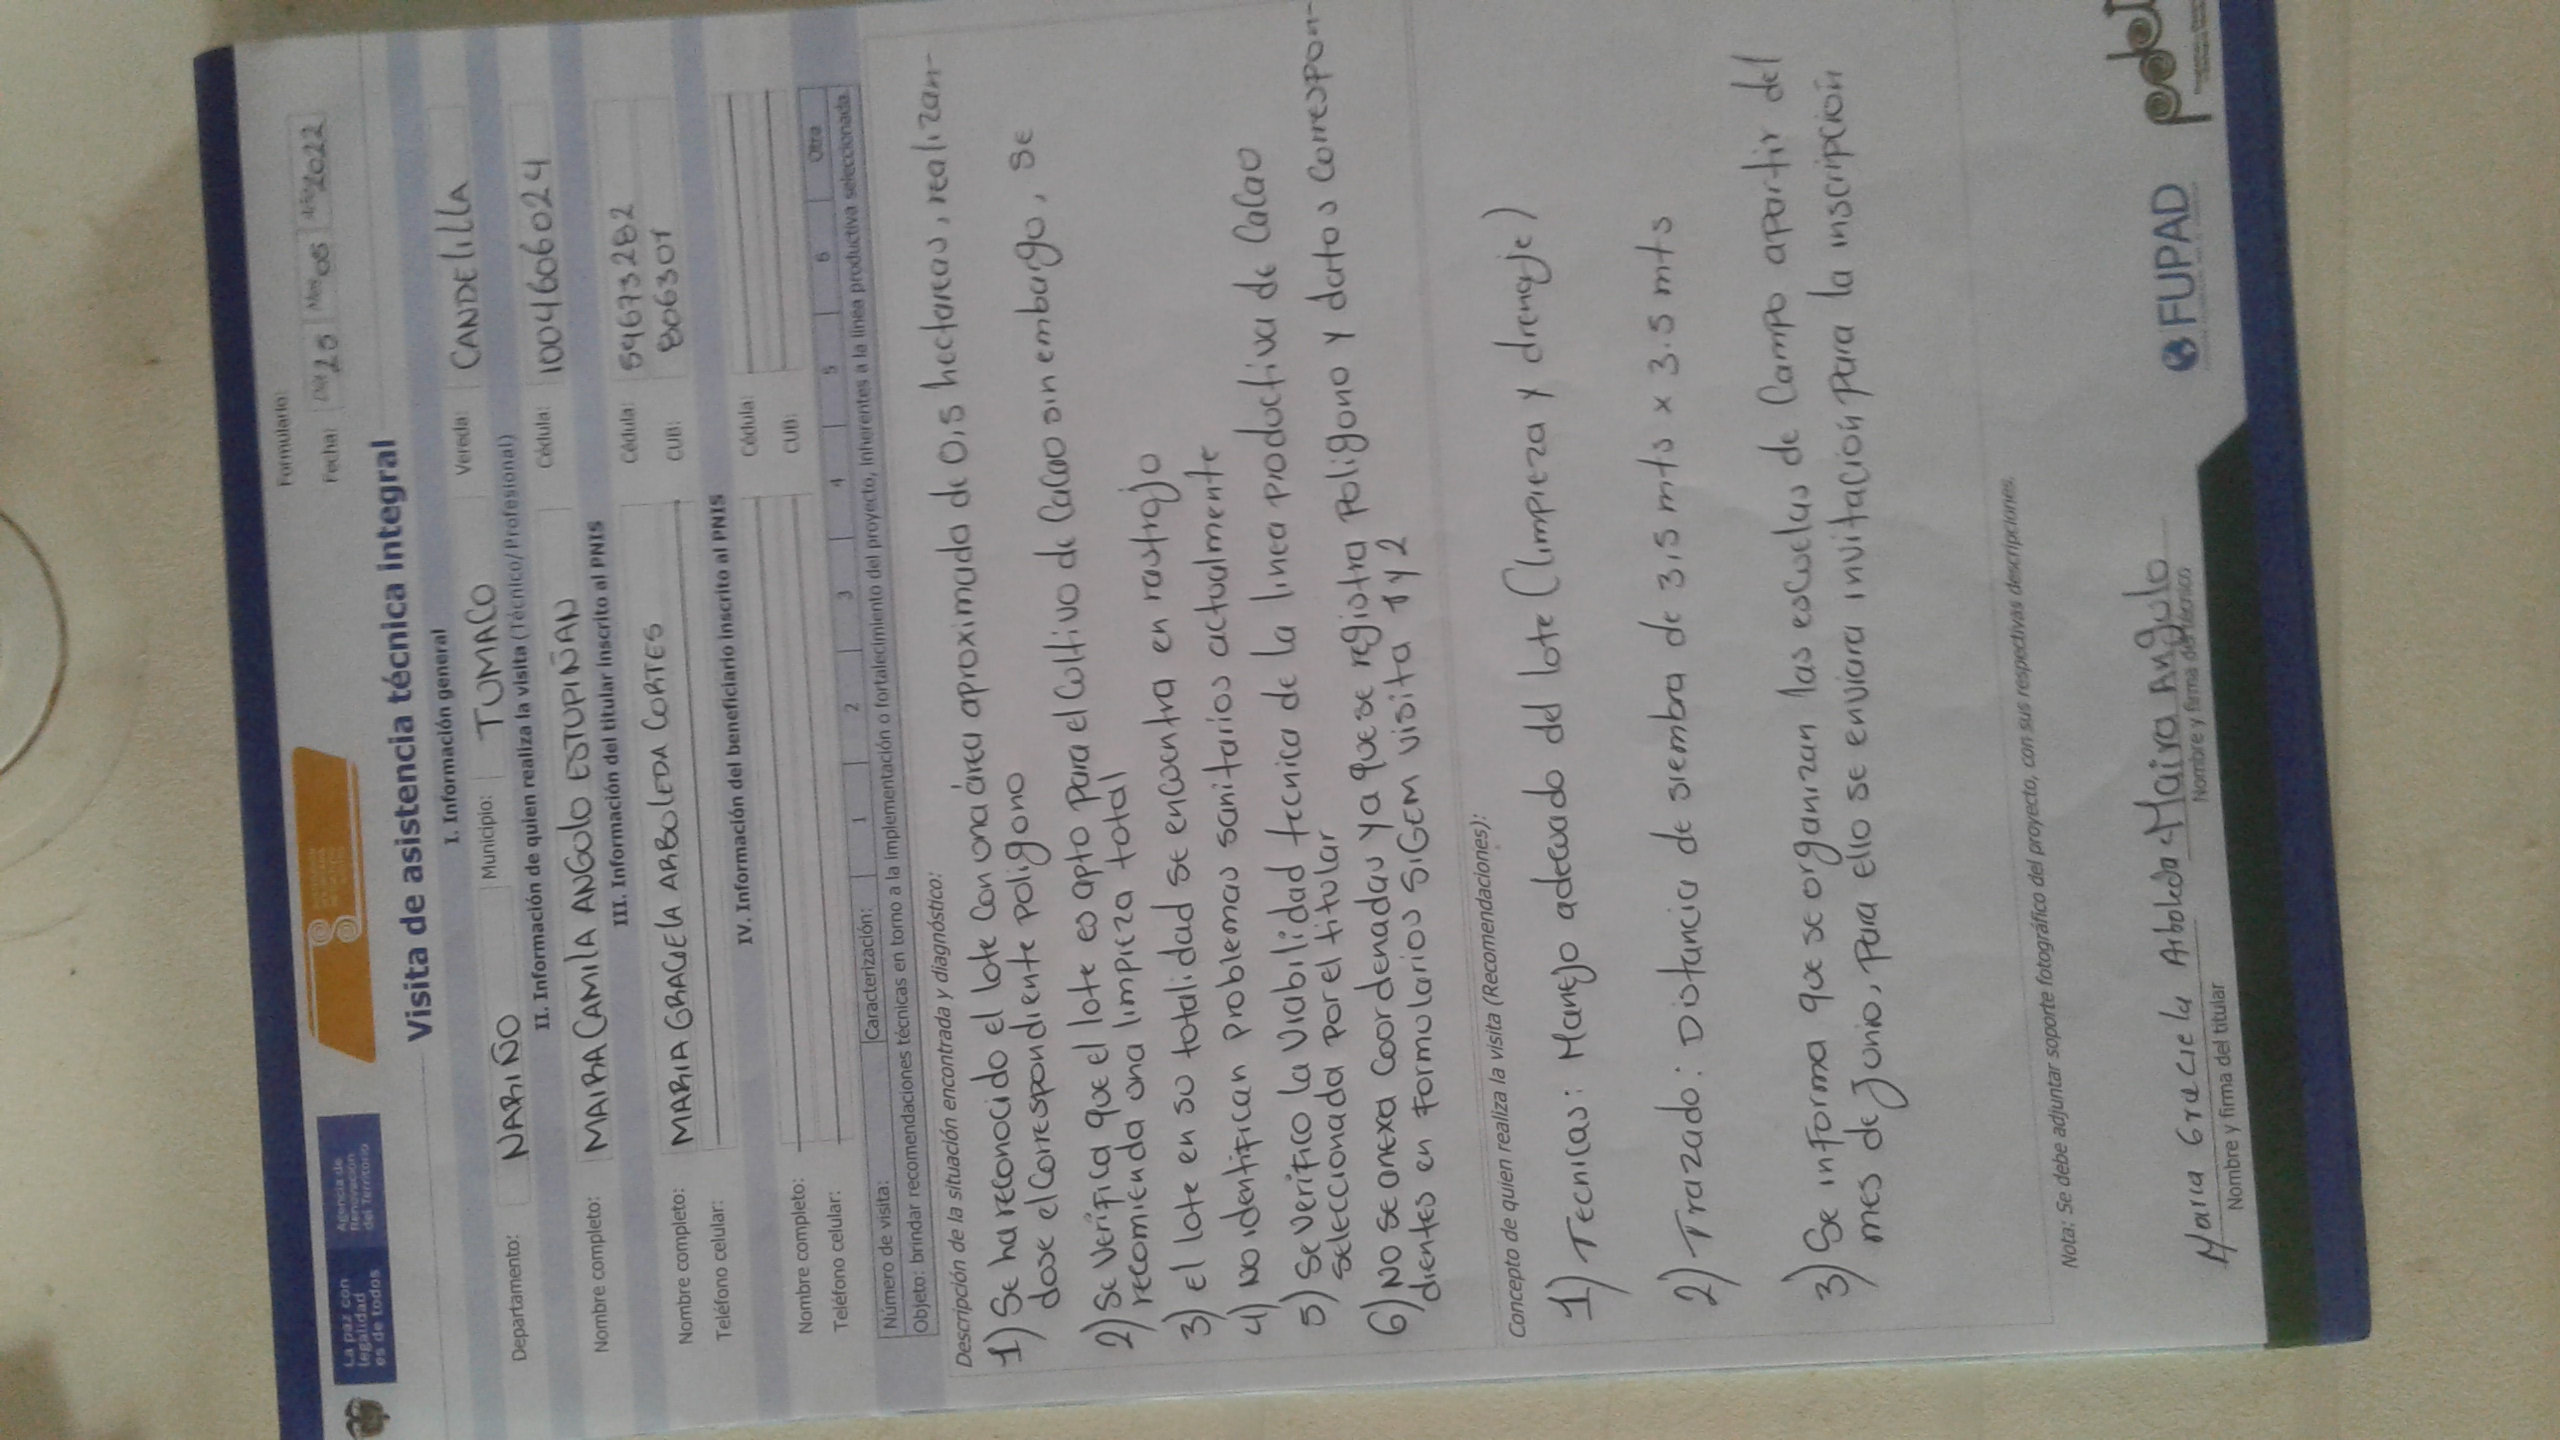 La paz con
legalidad
es de todos
Agencia de
Renovación
del Territorio
Formulario:
Fecha: Día 25 Mes 05 Año 2022
Visita de asistencia técnica integral
I. Información general
Departamento: NARIÑO Municipio: TUMACO Vereda: CANDELILLA
II. Información de quien realiza la visita (Técnico/Profesional)
Nombre completo: MAIRA CAMILA ANGULO ESTUPIÑAN Cédula: 1004606024
III. Información del titular inscrito al PNIS
Nombre completo: MARIA GRACIELA ARBOLEDA CORTES Cédula: 5967328 2
Teléfono celular: CUB: 806301
IV. Información del beneficiario inscrito al PNIS
Nombre completo: Cédula:
Teléfono celular: CUB:
Número de visita: Caracterización: 1 2 3 4 5 6 Otra
Objeto: brindar recomendaciones técnicas en torno a la implementación o fortalecimiento del proyecto, inherentes a la línea productiva seleccionada.
Descripción de la situación encontrada y diagnóstico:
1) Se ha reconocido el lote con una área aproximada de 0,5 hectareas, realizan-
dose el correspondiente poligono
2) Se verifica que el lote es apto para el cultivo de Cacao sin embargo, se
recomienda una limpieza total
3) El lote en su totalidad se encuentra en rastrojo
4) No identifican problemas sanitarios actualmente
5) Se verifico la viabilidad tecnica de la linea productiva de Cacao
seleccionada por el titular
6) No se anexa coordenadas ya que se registra poligono y datos correspon-
dientes en formularios SIGEM visita 1 y 2
Concepto de quien realiza la visita (Recomendaciones):
1) Tecnicas: Manejo adecuado del lote (limpieza y drenaje)
2) Trazado: Distancia de siembra de 3,5 mts x 3.5 mts
3) Se informa que se organizan las escuelas de Campo apartir del
mes de Junio, para ello se enviara invitación para la inscripción
Nota: Se debe adjuntar soporte fotográfico del proyecto, con sus respectivas descripciones.
Maria Graciela Arboleda Maira Angulo
Nombre y firma del titular Nombre y firma del técnico
FUPAD